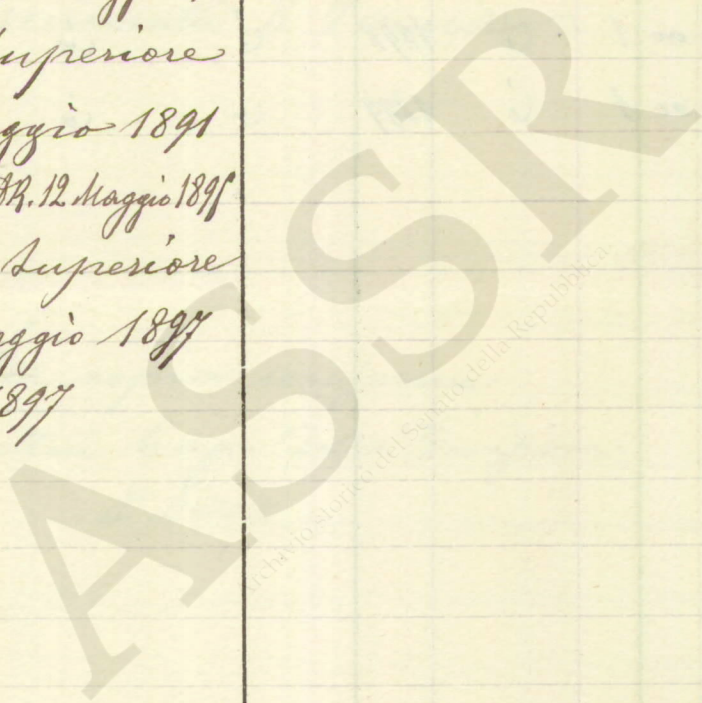 Superiore
ggio 1891
DR. 12 Maggio 1895
Superiore
ggio 1897
1897
ASSR
Archivio storico del Senato della Repubblica